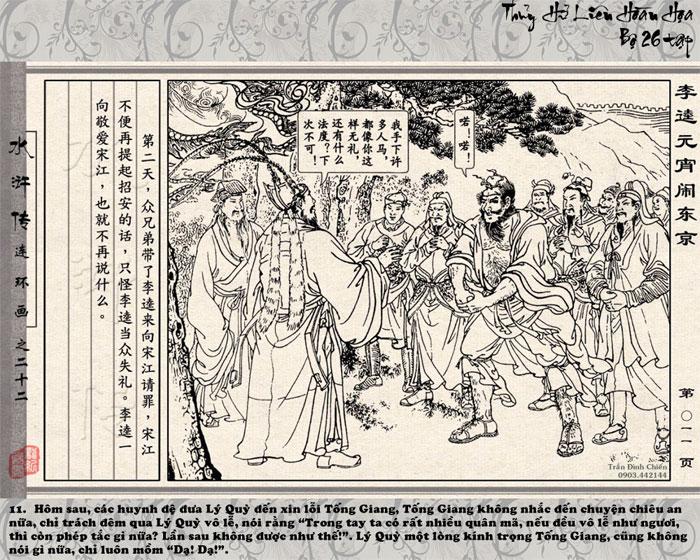 Thủy Hử Liên Hoàn Họa
Bộ 26 tập
李逵元宵闹东京
第〇一一页
喏！喏！
我手下许
多人马，
都像你这
样无礼，
还有什么
法度？下
次不可！
第二天，众兄弟带了李逵来向宋江请罪，宋江
不便再提起招安的话，只怪李逵当众失礼。李逵一
向敬爱宋江，也就不再说什么。
水浒传连环画之二十二
Trần Đình Chiến
0903.442144
11. Hôm sau, các huynh đệ đưa Lý Quỳ đến xin lỗi Tống Giang, Tống Giang không nhắc đến chuyện chiêu an
nữa, chỉ trách đêm qua Lý Quỳ vô lễ, nói rằng “Trong tay ta có rất nhiều quân mã, nếu đều vô lễ như ngươi,
thì còn phép tắc gì nữa? Lần sau không được như thế!”. Lý Quỳ một lòng kính trọng Tống Giang, cũng không
nói gì nữa, chỉ luôn mồm “Dạ! Dạ!”.